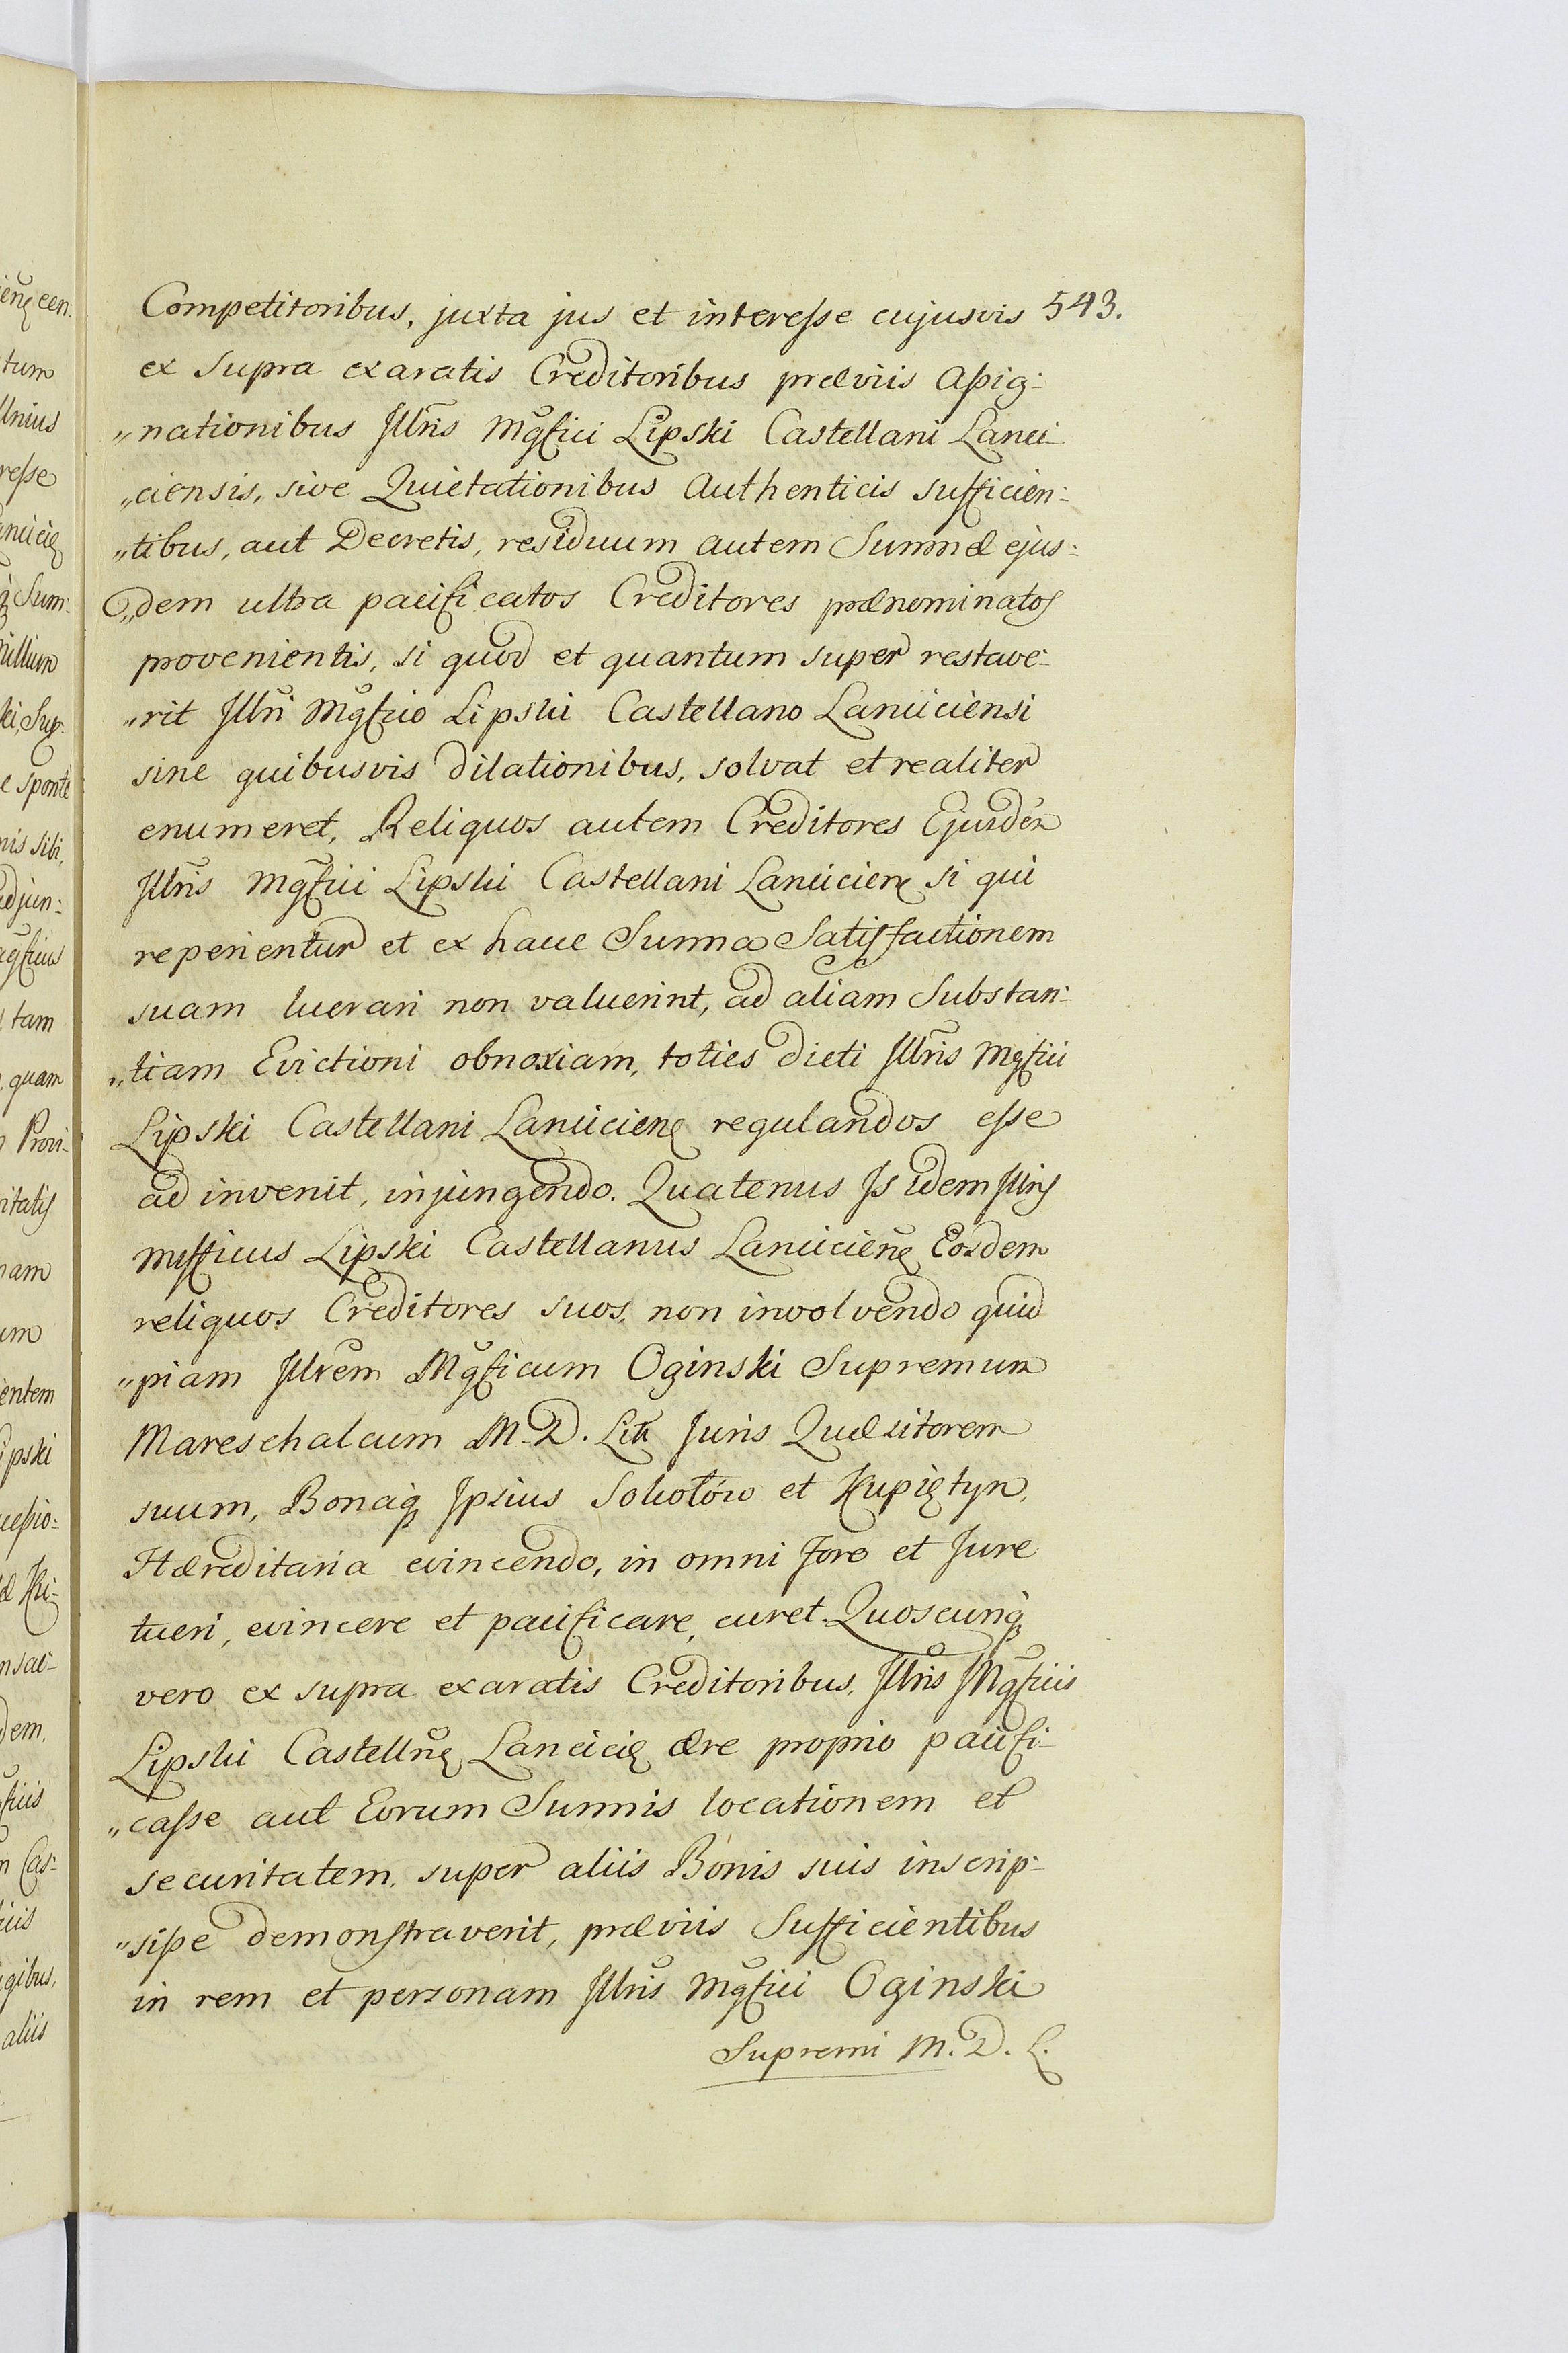 Competitoribus, juxta jus et interesse cujusvis 543.
ex supra exaratis Creditoribus præviis Assig:
„nationibus Jllris Mgfici Lipski Castellani Lanci
„ciensis, sive Quietationibus Authenticis sufficien:
„tibus, aut Decretis, residuum autem Summæ ejus:
„dem ultra pacificatos Creditores prænominatos
provenientis, si quod et quantum super restave:
„rit Jllri Mgfico Lipski Castellano Lanciciensi
sine quibusvis dilationibus, solvat et realiter
enumeret, Reliquos autem Creditores Ejusdem
Jllris Mgfici Lipski Castellani Lancicien si qui
reperientur et ex hacce Summa Satisfactionem
suam lucrari non valuerint, ad aliam Substan:
„tiam Evictioni obnoxiam, toties dicti Jllris Mgfici
Lipski Castellani Lancicien regulandos esse
ad invenit, injungendo. Quatenus Js idem Jllris
Mfficus Lipski Castellanus Lancicien Eosdem
reliquos Creditores suos, non involvendo quid
„piam Jllrem Mgficum Oginski Supremum
Mareschalcum M. D. Lit Juris Quæsitorem
suum, Bonaq Jpsius Sokołów et Kupiętyn,
Hæreditaria evincendo, in omni foro et Jure
tueri, evincere et pacificare, curet. Quoscunq
vero ex supra exaratis Creditoribus, Jllris Mgficus
Lipski Castellne Lancicie ære proprio pacifi:
„casse aut Eorum Summis locationem et
securitatem, super aliis Bonis suis inscrip:
„sisse demonstraverit, præviis Sufficientibus
in rem et personam Jllris Mgfici Oginski
Supremi M. D. L.